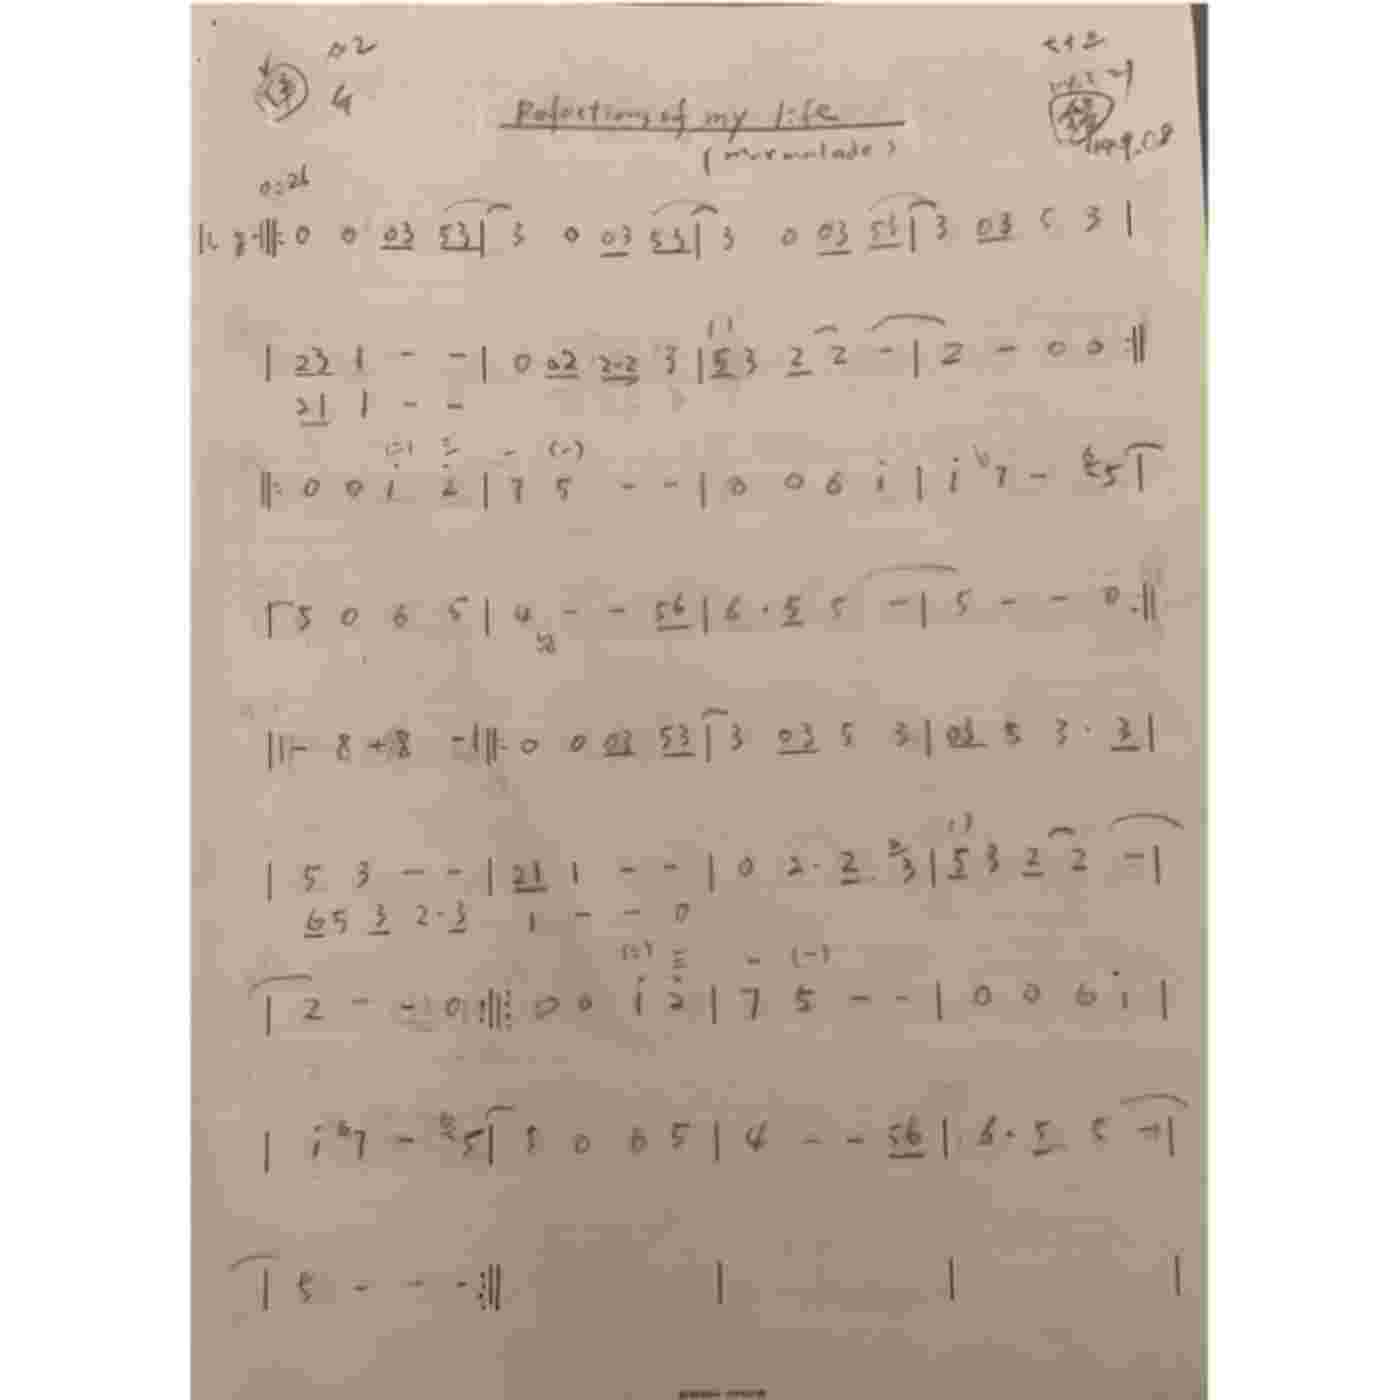 02
G
Refections of my life
(marmalade)
0:26
0 0 03 53 | 3 0 03 53 | 3 0 03 53 | 3 03 5 3 |
| 23 1 - - | 0 02 2·2 3 | 5 3 2 2 - | 2 - 0 0 :||
21 1 - -
||: 0 0 i 2 | 7 5 - - | 0 0 6 i | i 7 - 5 |
| 5 0 6 5 | 4 - - 56 | 6 · 5 5 - | 5 - - 0 :||
|| - 8 + 8 - ||: 0 0 03 53 | 3 03 5 3 | 03 5 3 · 3 |
| 5 3 - - | 21 1 - - | 0 2 · 2 3 | 5 3 2 2 - |
65 3 2·3 1 - - 0
| 2 - - 0 :||: 0 0 i 2 | 7 5 - - | 0 0 6 i |
| i 7 - 5 | 5 0 6 5 | 4 - - 56 | 6 · 5 5 - |
| 5 - - - :|| | | |